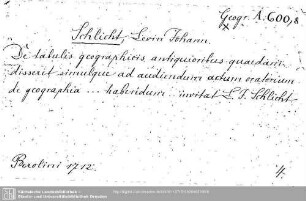 Geogr. A. 600,8
Schlicht, Levin Johann.
De tabulis geographicis antiquioribus quaedam
disserit simulque ad audiendum actum oratorium
de geographia ... habendum .. invitat L. J. Schlicht.
Berolini 1712.
4.
Sächsische Landesbibliothek -
Staats- und Universitätsbibliothek Dresden